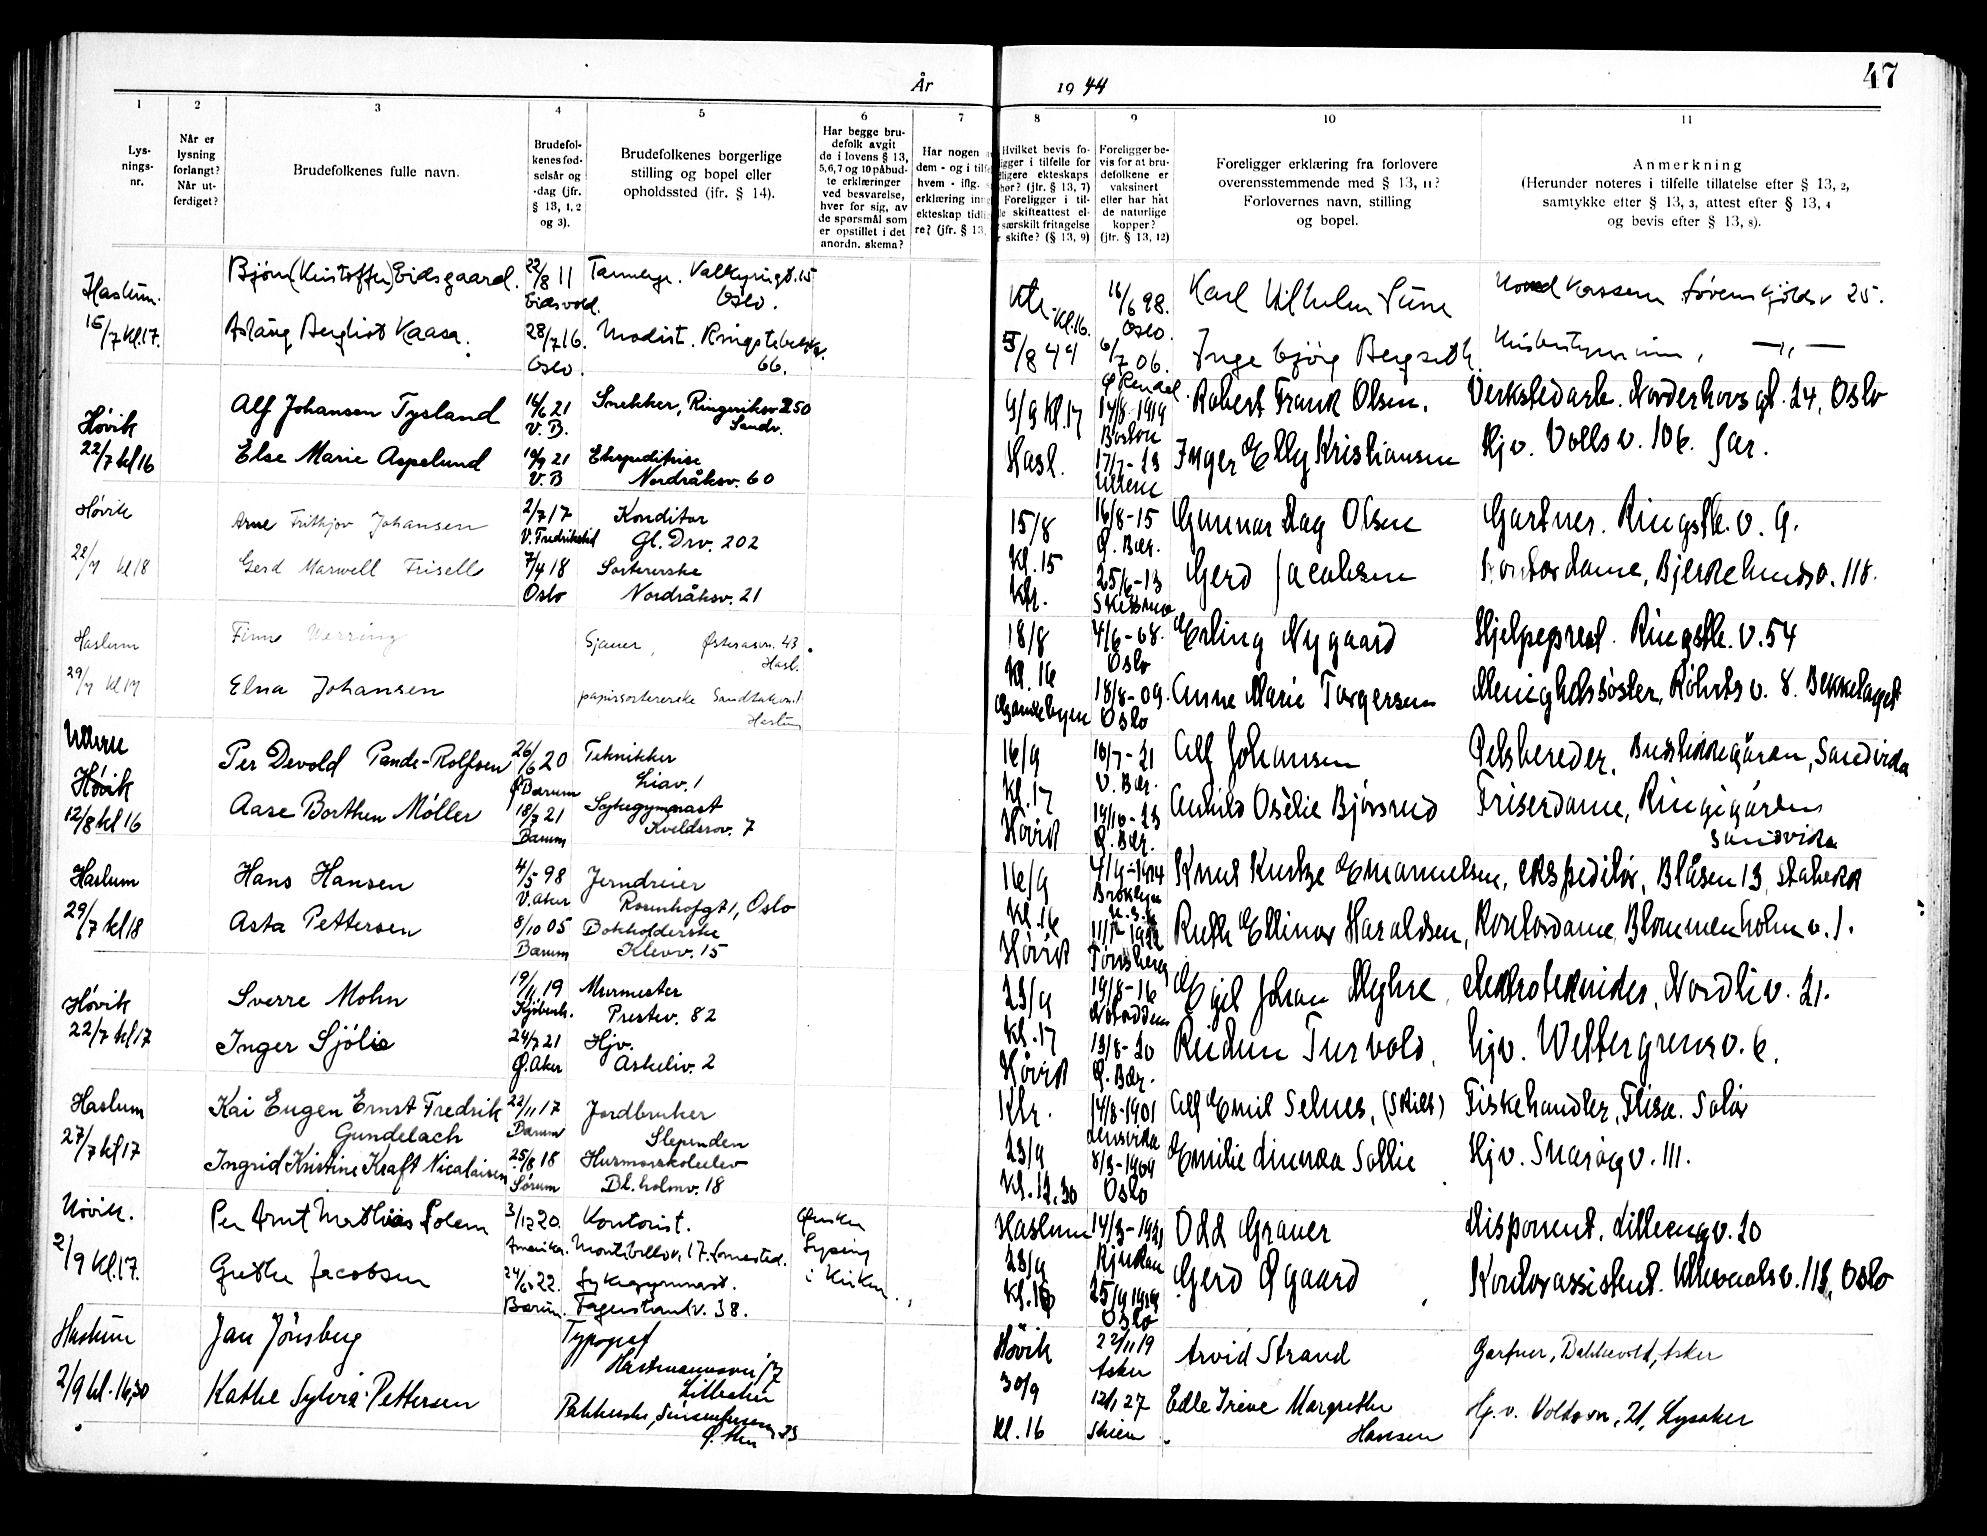 År
1
2
3
4
5
6
7
Lys-
nings-
nr.
Når er
lysning
forlangt?
Når ut-
ferdiget?
Brudefolkenes fulle navn.
Brudefol-
kenes fød-
selsår og
-dag (jfr.
§ 13, 1, 2
og 3).
Brudefolkenes borgerlige
stilling og bopel eller
opholdssted (jfr. § 14).
Har begge bru-
defolk avgit
de i lovens § 13,
5, 6, 7 og 10 påbud-
te erklæringer
ved besvarelse,
hver for sig, av
de spørsmål som
er opstillet i det
anordn. skema?
Har nogen
dem - og i tilf
hvem - iflg.
erklæring inn
ekteskap tidli
re? (jfr. § 13,
Haslum.
15/7 kl. 17.
Bjørn (Kristoffer) Eidsgaard.
22/8 11
Eidsvold.
Valkyriegt. 15
Oslo.
Aslaug Bergliot Kaasa.
28/7 16.
Oslo.
Modist. Ringstabekkv.
66.
Høvik
22/7 kl 16
Alf Johansen Tysland
16/6 21
V. B.
Snekker, Ringeriksv 250
Sandv.
Else Marie Aspelund
19/9 21
V. B
Ekspeditrise
Nordråksv. 60
Høvik
22/7 kl 18
Arne Frithjov Johansen
2/7 17
V. Fredrikstad
Konditor
Gl. Drv. 202
Gerd Marwell Frisell
7/4 18
Oslo
Sortererske
Nordråksv. 21
Haslum
29/7 kl 17
Finn Werring
Sjauer, Østeråsvn. 43.
Hasl.
Elna Johansen
papirsortererske Sandtakvn. 1
Haslum
Ullern
Høvik
12/8 kl 16
Per Devold Pande-Rolfsen
26/6 20
Ø Bærum
Tekniker
Liav. 1
Aase Borthen Møller
18/7 21
Bærum
Sykegymnast
Kveldsrov. 7
Haslum
29/7 kl 18
Hans Hansen
4/5 98
V. Aker
Jerndreier
Rosenhofgt 1, Oslo
Asta Pettersen
8/10 05
Bærum
Bokholderske
Klevv. 15
Høvik
22/7 kl 17
Sverre Mohn
19/11 19
Kjøbenh.
Murmester
Prestev. 82
Inger Sjølie
24/7 21
Ø. Aker
Hjv.
Askeliv. 2
Haslum
27/7 kl 17
Kai Eugen Ernst Fredrik
Gundelach
22/11 17
Bærum
Jordbruker
Slependen
Ingrid Kristine Kraft Nicolaisen
25/8 18
Sørum
Husmorskoleelev
Bl. holmv. 18
Høvik.
2/9 kl. 17.
Per Arnt Mathias Solem
3/12 20.
Amerika.
Kontorist.
Montebellov. 17.
Ønsker
lysing
i kirken.
Grethe Jacobsen
24/6 22.
Bærum.
Sykegymnast.
Fagerstrandv. 38.
Haslum
2/9 kl. 16,30
Jan Jønsberg
Typograf
Hartmannsvei 7
Lilleaker
Kathe Sylvia Pettersen
Pakkerske,
Ø. Aker
1944
47
8
9
10
11
Hvilket bevis fo-
ligger i tilfelle for
dligere ekteskaps
hør? (jfr. § 13, 7)
Foreligger i til-
le skifteattest el-
særskilt fritagelse
skifte? (§ 13, 9)
Foreligger be-
vis for at bru-
defolkene er
vaksinert
eller har hat
de naturlige
kopper?
(jfr. § 13, 12)
Foreligger erklæring fra forlovere
overensstemmende med § 13, 11?
Forlovernes navn, stilling
og bopel.
Anmerkning
(Herunder noteres i tilfelle tillatelse efter § 13, 2,
samtykke efter § 13, 3, attest efter § 13, 4
og bevis efter § 13, 8).
Kl. 16.
5/8 44
16/6 98.
Oslo.
Karl Vilhelm
25.
6/7 06.
Ø Rendal
Ingebjørg Bergseth
9/9 kl 17
Hasl.
14/8-1919
Boston
Robert Frank Olsen.
Verkstedarb. Norderhovsgt. 24, Oslo
17/7-23
Ullern
Inger Elly Kristiansen
Hjv. Vollsv. 106. Jar.
15/8
Kl. 15
Kbr.
16/8-15
Ø. Bær.
Gunnar Dag Olsen
Gartner. Ringstb. v. 9.
25/6-13
Skiptvet
Gerd Jacobsen
Kontordame, Bjerkelundsv. 118.
18/8
Kl. 16
4/6-08.
Oslo
Erling Nygaard
Hjelpeprest. Ringstb. v. 54
18/8-09.
Oslo
Anne Marie Torgersen
Menighetssøster, v. 8. Bekkelaget
16/9
Kl. 17
Høvik
10/7-21
V. Bær.
Alf Johansen
Pelsbereder, Sandvika
19/10-23
Ø. Bær.
Osélie Bjørsrud
Friserdame, Ringigården
Sandvika
16/9
Kl. 16
Høvik
Brooklyn
U.S.A
Knut Kurtze Emanuelsen, ekspeditør, Blåsen 13, Stabekk
Tønsberg
Ruth Ellinor Haraldsen, Kontordame, Blommenholmv. 1.
23/9
Kl. 17
Høvik
19/8-16
Notodden
Egil Johan Myhre, elektrotekniker, Nordliv. 21.
13/8-20
Ø. Bær.
Reidun Turvold, hjv. Wettergrensv. 6.
Kbr.
23/9
Kl. 13,30
14/8-1901
Lensvika
Alf Emil Selnes, (Skilt) Fiskehandler, Flisa. Solør
8/3-1909
Oslo
Emilie Linnea Sollie
Hjv. Snarøyv. 111.
Haslum
23/9
Kl. 16
14/3-1921
Rjukan
Odd Graver
Disponent, Lilleengv. 20
25/9 1919
Oslo
Gerd Øgaard
Kontorassistent. Ullevaalsv. 113, Oslo
Høvik
30/9
Kl. 16
22/11 19
Asker
Arvid Strand
Gartner, Bakkevold, Asker
12/1 27
Skien
Edle Irene Margrethe
Hansen
Hj. v. Voldsvn, 21, Lysaker